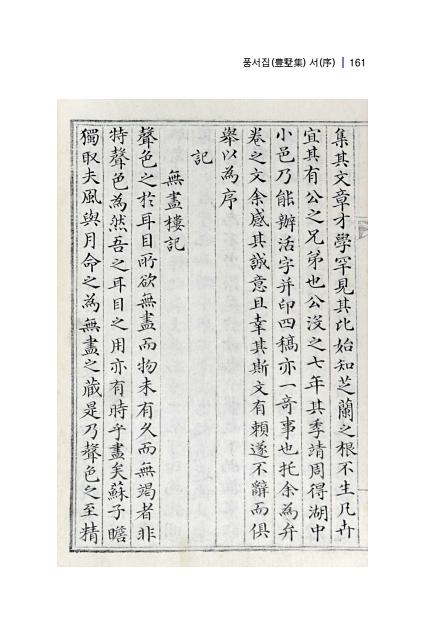 풍서집(豊墅集) 서(序) | 161
集其文章才學罕見其比始知芝蘭之根不生凡卉
宜其有公之兄弟也公沒之七年其季靖周得湖中
小邑乃能辦活字并印四稿亦一奇事也托余為弁
卷之文余感其誠意且幸其斯文有賴遂不辭而俱
擧以為序
記
無盡樓記
聲色之於耳目所欲無盡而物未有久而無竭者非
特聲色為然吾之耳目之用亦有時乎盡矣蘇子瞻
獨取夫風與月命之為無盡之藏是乃聲色之至精